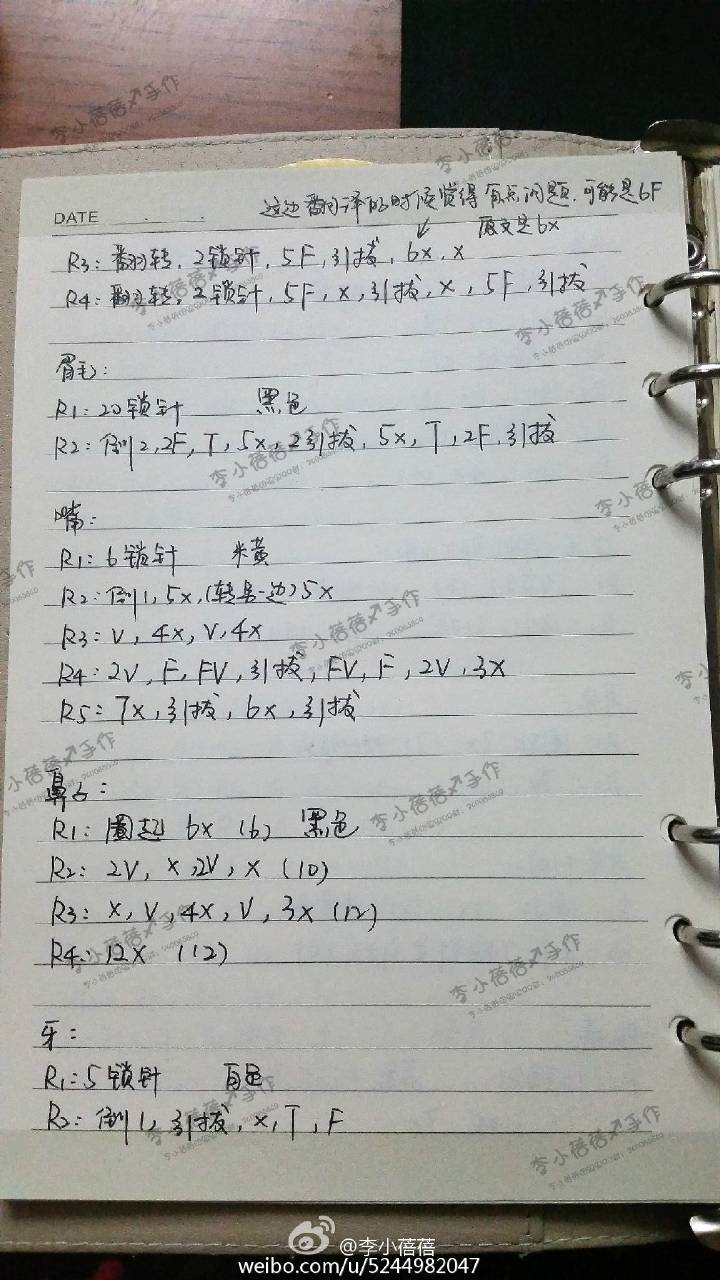 DATE
这边翻译的时候觉得有点问题.可能是6F
原文是6x
R3: 翻转, 2锁针, 5F, 引拔, 6x, x
R4: 翻转, 2锁针, 5F, x, 引拔, x, 5F, 引拔
眉毛:
R1: 20锁针 黑色
R2: 倒2, 2F, T, 5x, 2引拔, 5x, T, 2F, 引拔
嘴:
R1: 6锁针 米黄
R2: 倒1, 5x, (转另一边) 5x
R3: V, 4x, V, 4x
R4: 2V, F, FV, 引拔, FV, F, 2V, 3x
R5: 7x, 引拔, 6x, 引拔
鼻子:
R1: 圈起 6x (6) 黑色
R2: 2V, x, 2V, x (10)
R3: x, V, 4x, V, 3x (12)
R4: 12x (12)
牙:
R1: 5锁针 白色
R2: 倒1, 引拔, x, T, F
李小蓓蓓♐手作
@李小蓓蓓
weibo.com/u/5244982047